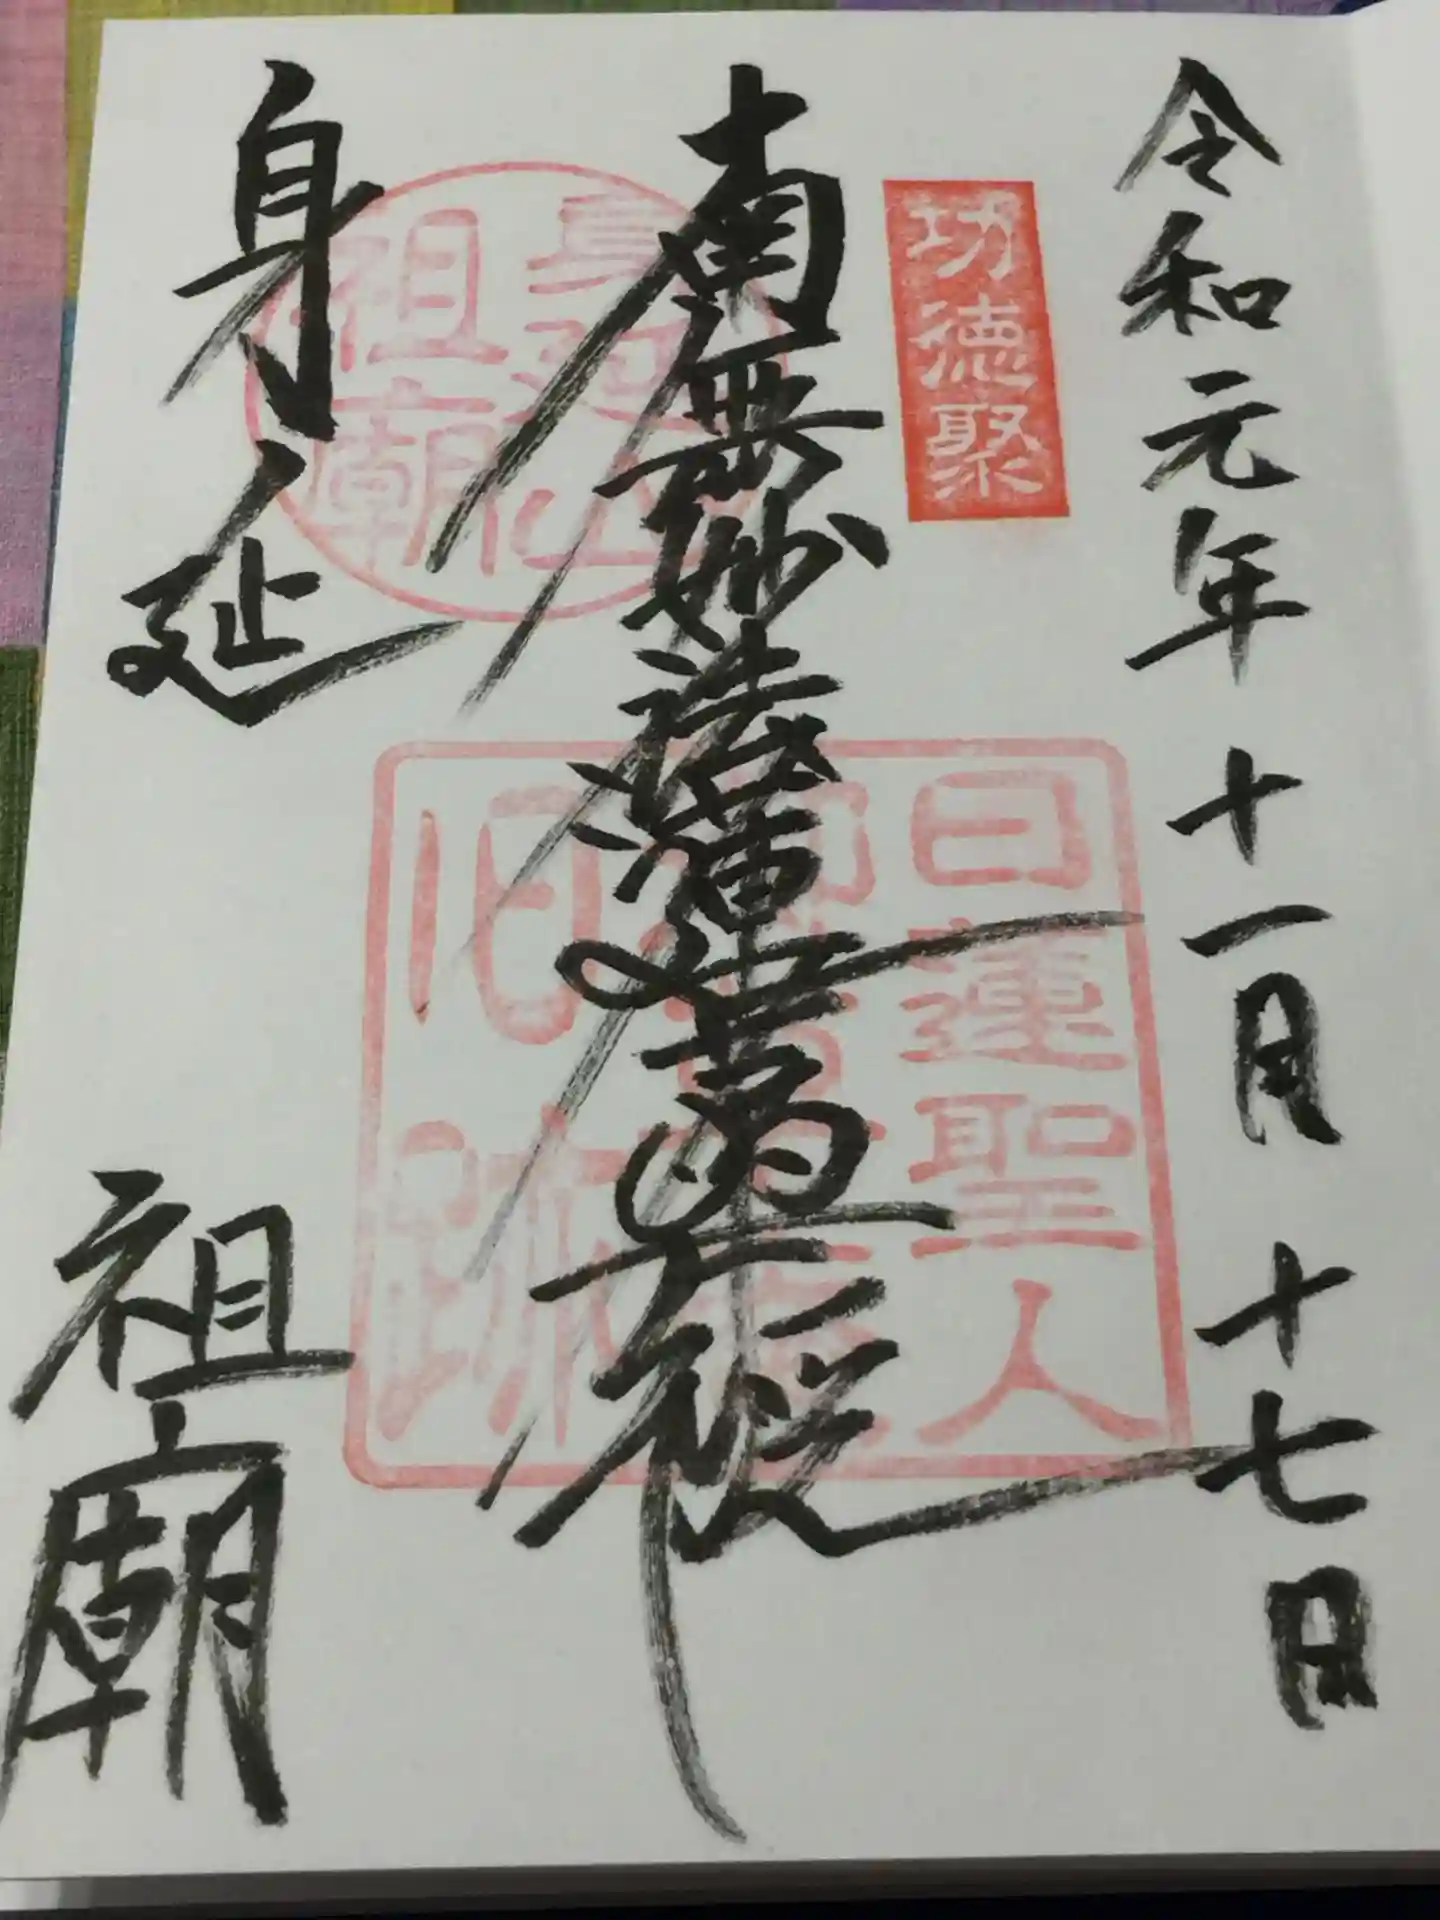 令和元年 十一月 十七日
功徳聚
南無妙法蓮華経
身延山
祖廟
日蓮聖人
旧跡
身延 祖廟